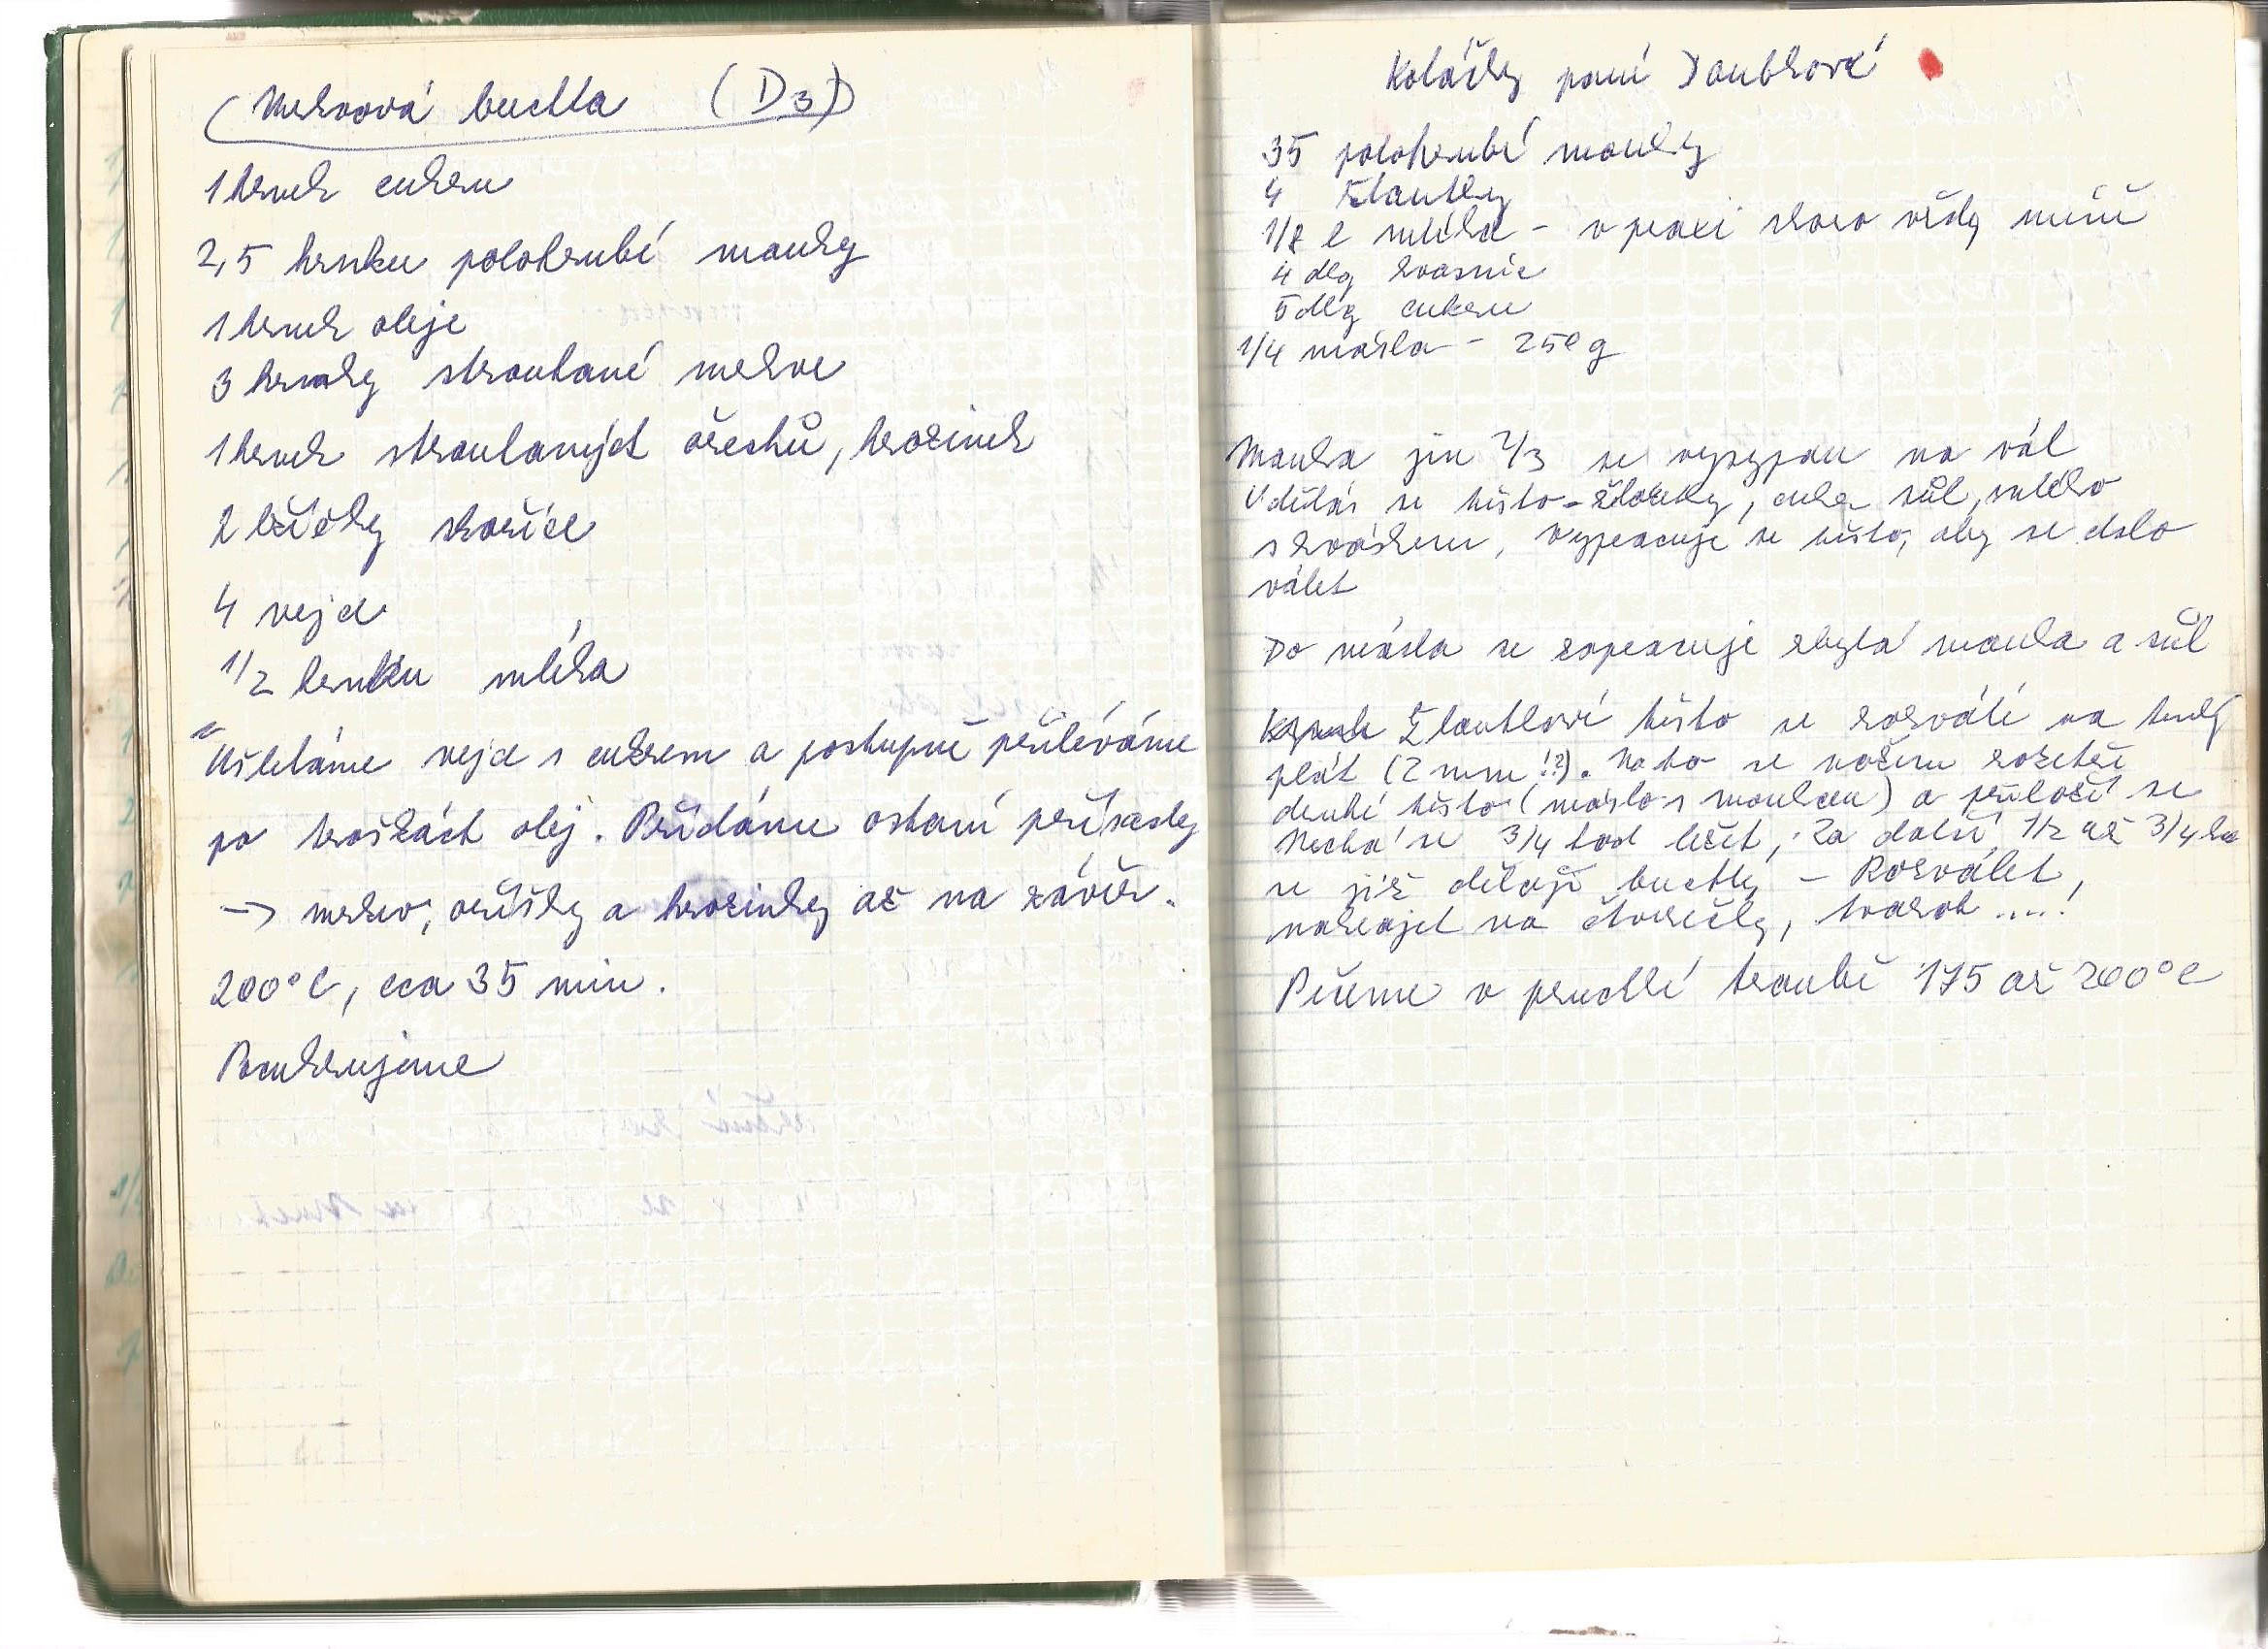 Mrkvová buchta (D3)
1 hrnek cukru
2,5 hrnku polohrubé mouky
1 hrnek oleje
3 hrnky strouhané mrkve
1 hrnek strouhaných ořechů, hrozinek
2 lžičky skořice
4 vejce
1/2 hrnku mléka
Ušleháme vejce s cukrem a postupně přiléváme
po troškách olej. Přidáme ostaní přísady
→ mrkev, oříšky a hrozinky až na závěr.
200°C, cca 35 min.
Pocukrujeme
Koláčky paní Doubkové
35 polohrubé mouky
4 žloutky
1/8 l mléka - v praxi skoro vždy méně
4 dkg kvasnic
5 dkg cukru
1/4 másla - 250 g
Mouka jen 2/3 se vysypou na vál
Udělá se těsto - žloutky, cukr, sůl, mléko
s kváskem, vypracuje se těsto, aby se dalo
válet
Do másla se zapracuje zbylá mouka a sůl
Žloutkové těsto se rozválí na tenký
plát (2 mm!?). Na to se nožem rozetře
druhé těsto (máslo s moukou) a přeloží se
Nechá se 3/4 hod ležet, za další 1/2 až 3/4 ho
se již dělají buchty - Rozválet,
nakrájet na čtverečky, tvaroh ....!
Pečeme v prudké troubě 175 až 200°C